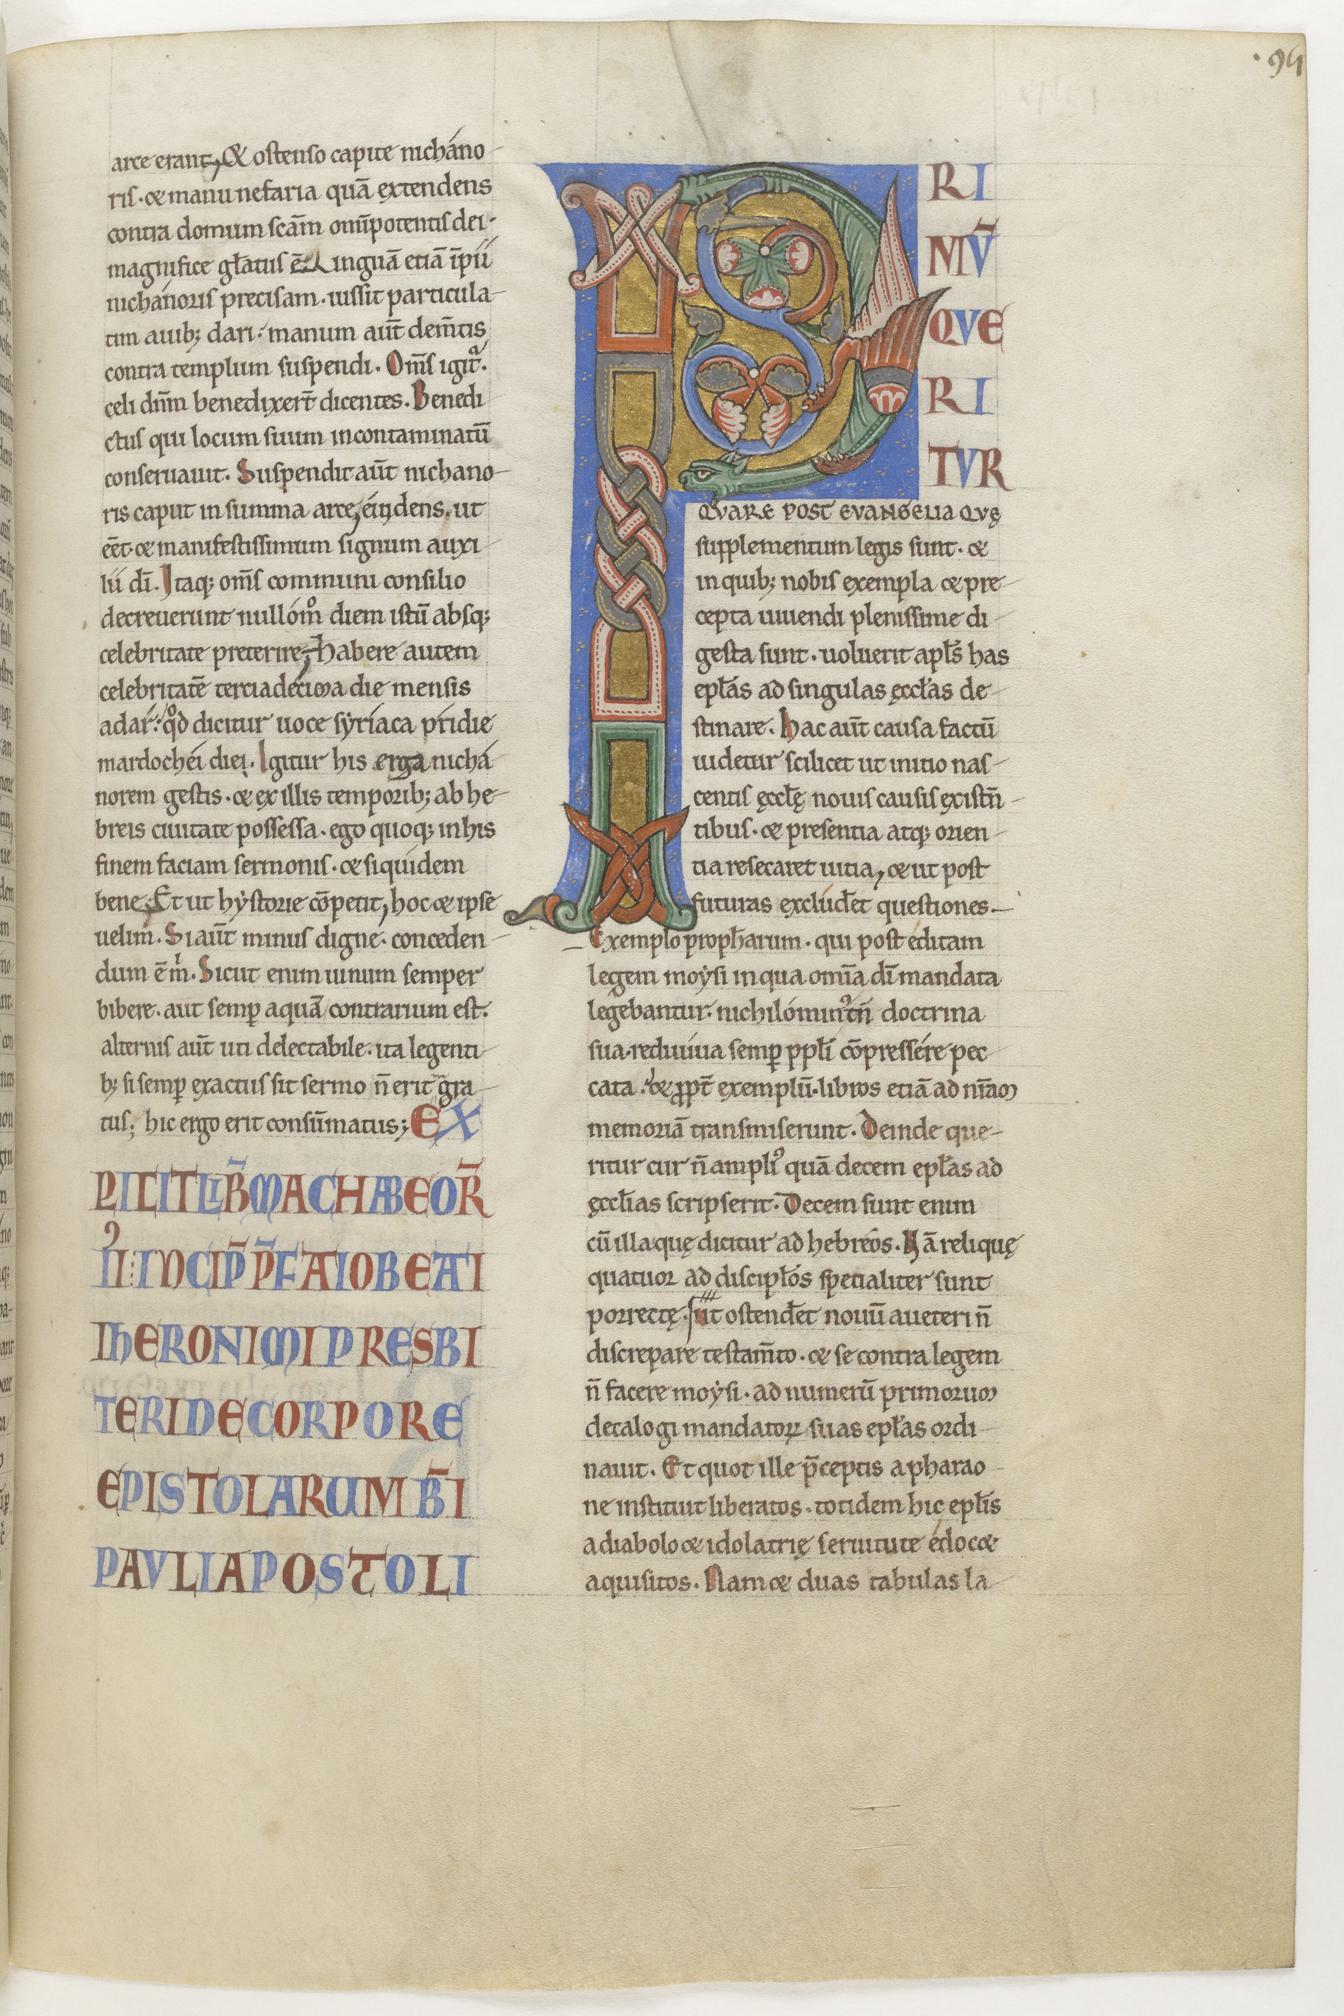 ·94
arce erant, & ostenso capite nicháno
ris· & manu nefaria quā extendens
contra domum scām omīpotentis dei·
magnifice gl̄atus ē. Linguā etiā īpii
nichánoris precisam· iussit particula
tim auib; dari· manum aūt dem̄tis
contra templum suspendi. Om̄s igit̄.
celi dn̄m benedixer̄t dicentes. Benedi
ctus qui locum suum incontaminatū
conseruauit. Suspendit aūt nichano
ris caput in summa arce, euidens· ut
eēt & manifestissimum signum auxi
lii dī. Itaq; om̄s communi consilio
decreuerunt nullo m̊ diem istū absq;
celebritate preterire, habere autem
celebritatē terciadecima die mensis
adar· qđ dicitur uoce sẏríaca pridie
mardochéi diei. Igitur his erga nichá
norem gestis· & ex illis temporib; ab he
breis ciuitate possessa· ego quoq; in his
finem faciam sermonis· & siquidem
bene. Et ut hẏstorie cōpetit, hoc & ipse
uelim. Si aūt minus digne· conceden
dum ē m̄. Sicut enim uinum semper
bibere· aut semp aquā contrarium est·
alternis aūt uti delectabile· ita legenti
b; si semp exactus sit sermo n̄ erit gra
tus; hic ergo erit consūmatus; EX
PLICIT LIB̄ MACHABEOR̄
II· INCIP̄ P̄FATIO BEATI
IHERONIMI PRESBI
TERI DE CORPORE
EPISTOLARUM B̄I
PAVLI APOSTOLI
PRI
MV̄
QVE
RI
TVR
QVARE POST EVANGELIA QVĘ
supplementum legis sunt· &
in quib; nobis exempla & pre
cepta uiuendi plenissime di
gesta sunt· uoluerit apl̄s has
epl̄as ad singulas ęccl̄as de
stinare. Hac aūt causa factū
uidetur scilicet ut initio nas
centis ęccl̄ę nouis causis existn̄
tibus· & presentia atq; orien
tia resecaret uitia, & ut post
futuras exclúdēt questiones.
Exemplo proph̄arum· qui post editam
legem moẏsi in qua om̄ia dī mandata
legebantur· nichilómin᷒ tn̄ doctrina
sua rediuiua semp ppl̄i cōpressére pec
cata· & ꝓpt̄ exemplū· libros etiā ad nr̄am
memoriā transmiserunt. Deinde que
ritur cur n̄ ampli᷒ quā decem epl̄as ad
ęccl̄ias scripserit. Decem sunt enim
cū illa quę dicitur ad hebréos. Nā reliquę
quatuor ad discipl̄os specialiter sunt
porrectę. ut ostendēt nouū a ueteri n̄
discrepare testam̄to· & se contra legem
n̄ facere moẏsi· ad numerū primorum
decalogi mandatoꝝ suas epl̄as ordi
nauit. Et quot ille p̄ceptis a pharao
ne instituit liberatos· totidem hic epl̄is
a diabolo & idolatrię seruitute édocet
aquisitos. Nam & duas tabulas la